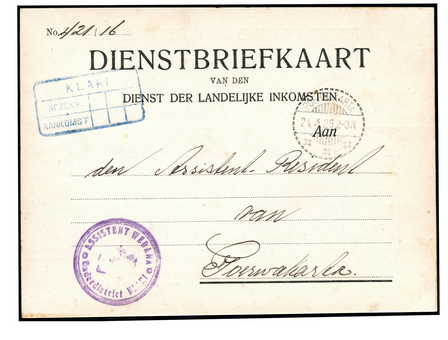 No. 420/16
DIENSTBRIEFKAART
VAN DEN
DIENST DER LANDELIJKE INKOMSTEN
KLARI
AANKOMST
21.4.28.2-3N
Aan
den Assistent-Resident
van
Poerwakarta.
ASSISTENT WEDANA
Onderdistrict KLARI